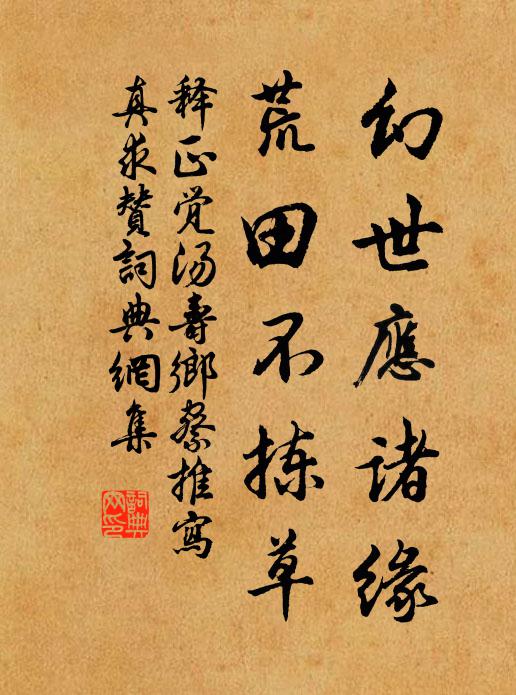 幻世應諸緣
荒田不揀草
释正觉汤壽鄉察推寫
真求赞詞典網集
詞典
网印